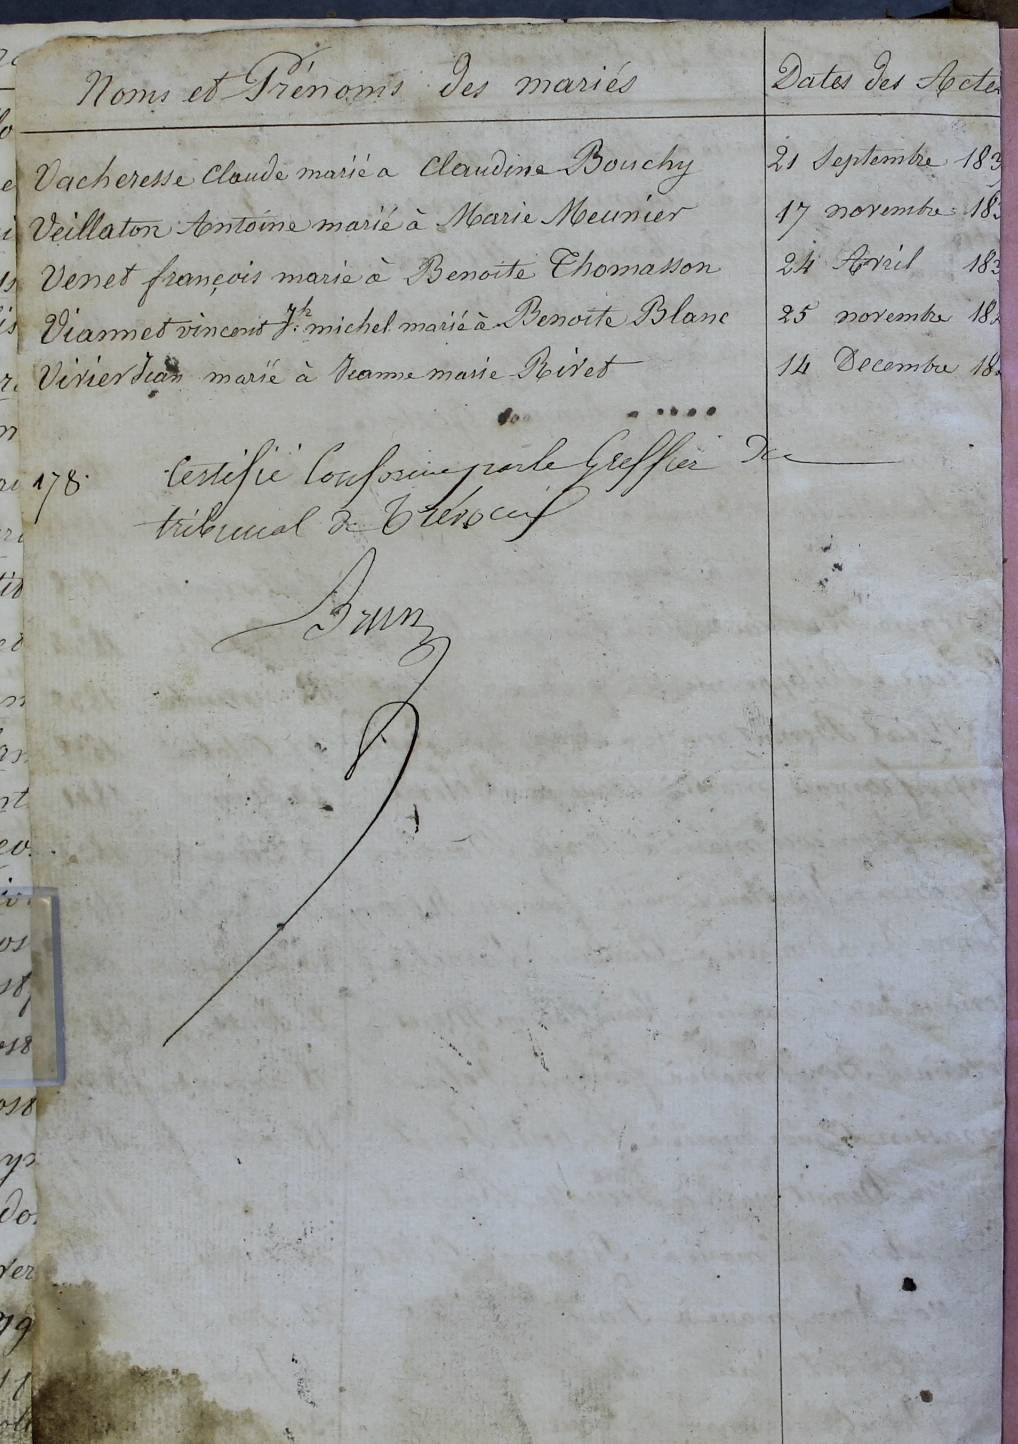 Noms et Prénoms des mariés Dates des Actes
Vacheresse Claude marié a Claudine Bouchy 21 Septembre 183
Veillaton Antoine marié à Marie Meunier 17 novembre 18
Venet françois marié à Benoite Thomasson 24 Avril 183
Viannet vincent Jh. michel marié à Benoite Blanc 25 novembre 18
Virier Jean marié à Jeanne marie Rivet 14 Decembre 18
178. Certifié Conforme par le Greffier du
tribunal de Trévoux
Brun